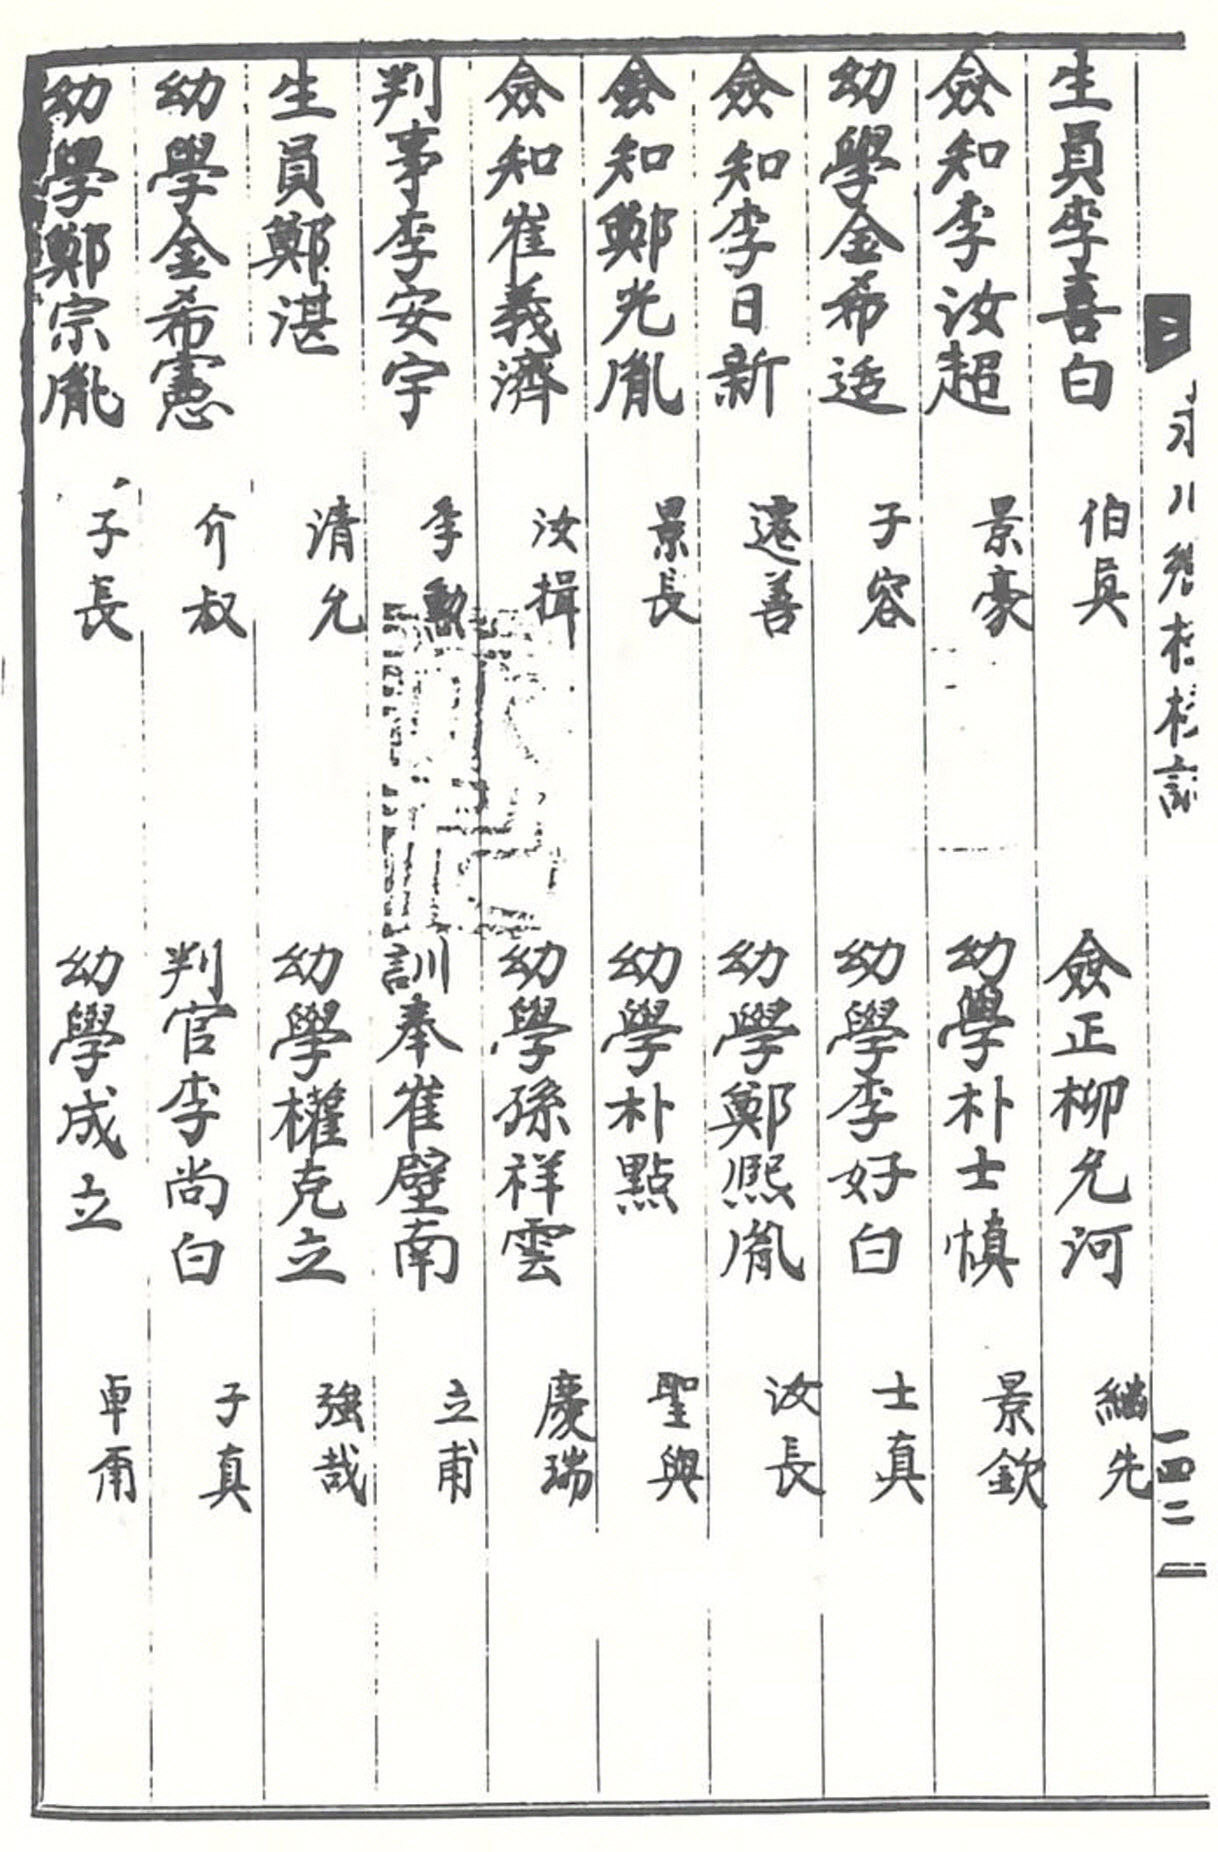 生員李喜白 伯眞 僉正柳允河 繼先
僉知李汝超 景豪 幼學朴士愼 景欽
幼學金希适 子容 幼學李好白 士真
僉知李日新 遠善 幼學鄭煕胤 汝長
僉知鄭光胤 景長 幼學朴點 聖與
僉知崔義濟 汝揖 幼學孫祥雲 慶瑞
判事李安宇 季勳 訓奉崔壁南 立甫
生員鄭湛 清允 幼學權克立 強哉
幼學金希憲 介叔 判官李尚白 子真
幼學鄭宗胤 子長 幼學成立 卓甭
一四二